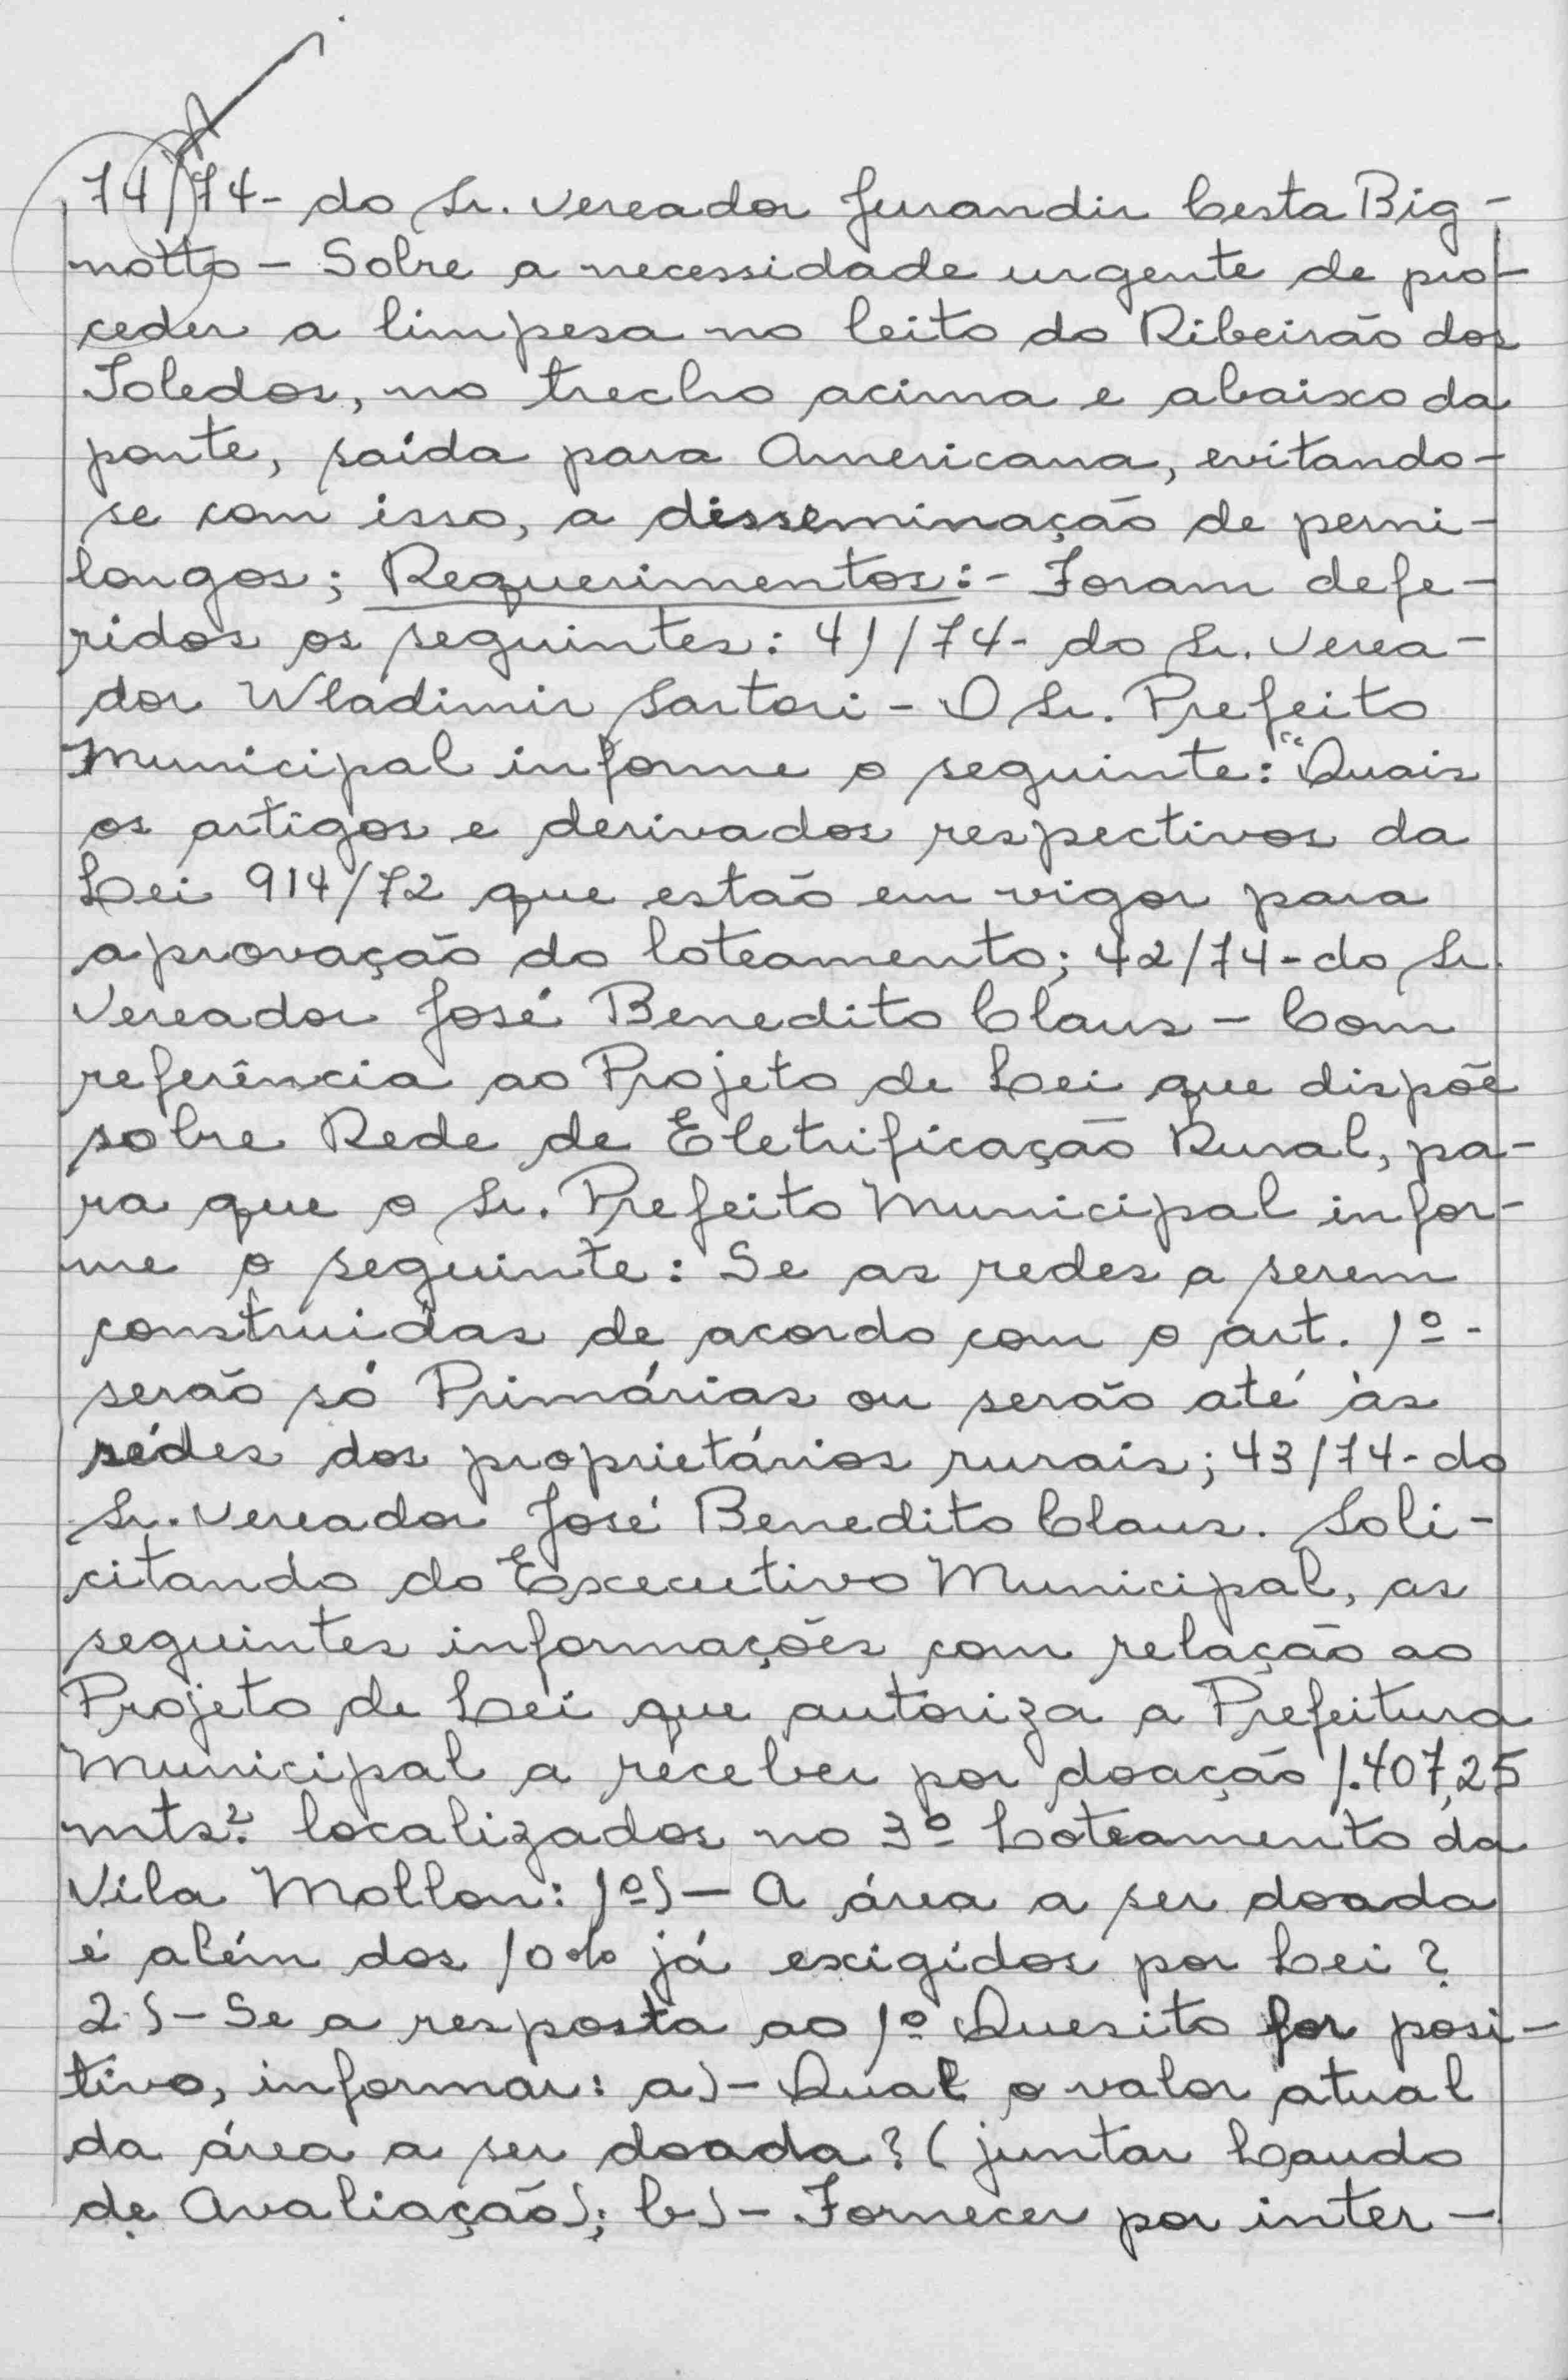 74/74- do Sr. Vereador Jurandir Cesta Big-
notto - Sobre a necessidade urgente de pro-
ceder a limpesa no leito do Ribeirão dos
Toledos, no trecho acima e abaixo da
ponte, saída para Americana, evitando-
se com isso, a disseminação de perni-
longos; Requerimentos:- Foram defe-
ridos os seguintes: 41/74- do Sr. Verea-
dor Wladimir Sartori - O Sr. Prefeito
Municipal informe o seguinte: "Quais
os artigos e derivados respectivos da
Lei 914/72 que estão em vigor para
aprovação do loteamento; 42/74- do Sr.
Vereador José Benedito Claus - Com
referência ao Projeto de Lei que dispõe
sobre Rede de Eletrificação Rural, pa-
ra que o Sr. Prefeito Municipal infor-
me o seguinte: Se as redes a serem
construidas de acordo com o art. 1º-
serão só Primárias ou serão até às
sédes dos proprietários rurais; 43/74- do
Sr. Vereador José Benedito Claus. Soli-
citando do Executivo Municipal, as
seguintes informações com relação ao
Projeto de Lei que autoriza a Prefeitura
Municipal a receber por doação 1.407,25
mts². localizados no 3º Loteamento da
Vila Mollon: 1º) - A área a ser doada
é além dos 10% já exigidos por Lei?
2.) - Se a resposta ao 1º Quesito for posi-
tivo, informar: a) - Qual o valor atual
da área a ser doada? (juntar Laudo
de Avaliação); b) - Fornecer por inter-